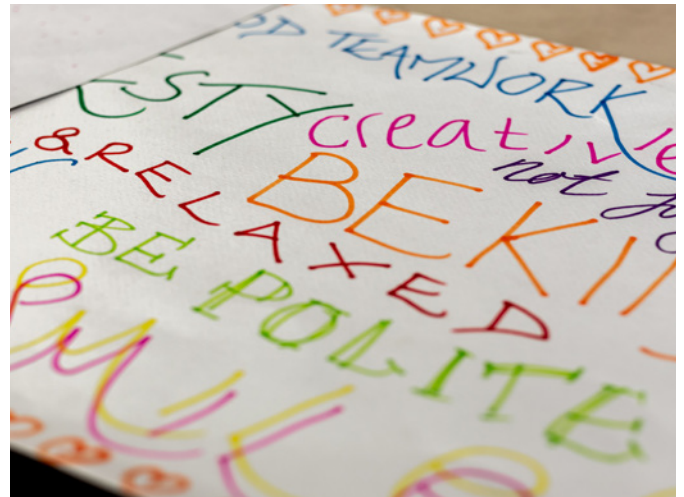 OD TEAMWORK
ESTY
creativ
not
& RELAXED
BE KI
BE POLITE